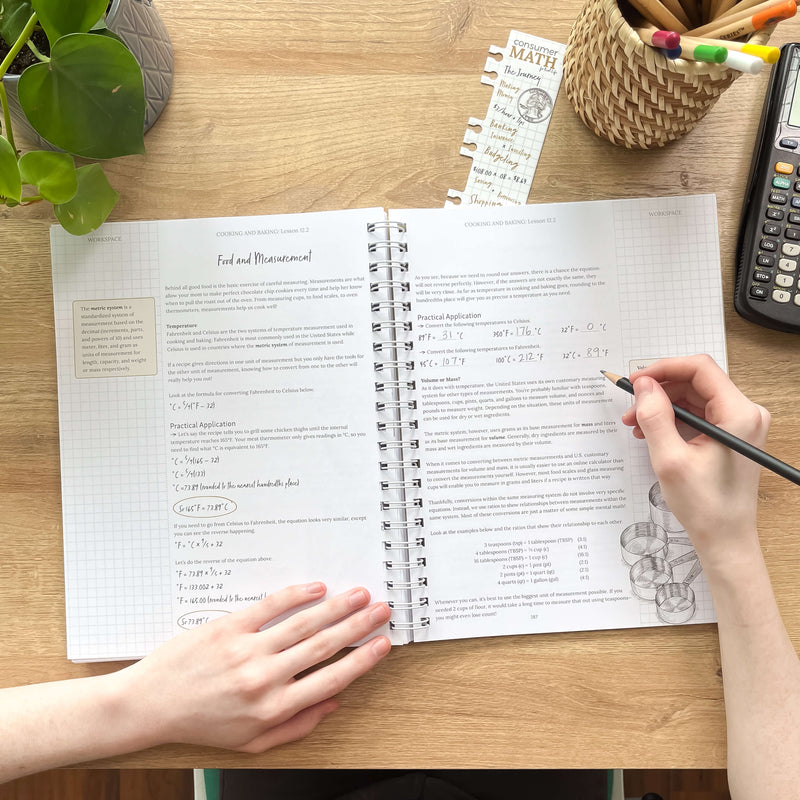 consumer
MATH
The Journey
Making
Money
Banking
Insurance
+ Investing
Budgeting
$108.00 x .08 = $8.64
Shopping
WORKSPACE
COOKING AND BAKING: Lesson 12.2
Food and Measurement
The metric system is a
standardized system of
measurement based on the
decimal (increments, parts,
and powers of 10) and uses
meter, liter, and gram as
units of measurement for
length, capacity, and weight
or mass respectively.
Behind all good food is the basic exercise of careful measuring. Measurements are what
allow your mom to make perfect, chocolate chip cookies every time and help her know
when to pull the roast out of the oven. From measuring cups, to food scales, to oven
thermometers, measurements help us cook well!
Temperature
Fahrenheit and Celsius are the two systems of temperature measurement used in
cooking and baking. Fahrenheit is most commonly used in the United States while
Celsius is used in countries where the metric system of measurement is used.
If a recipe gives directions in one unit of measurement but you only have the tools for
the other unit of measurement, knowing how to convert from one to the other will
really help you out!
Look at the formula for converting Fahrenheit to Celsius below.
°C = 5/9(°F – 32)
Practical Application
→ Let's say the recipe tells you to grill some chicken thighs until the internal
temperature reaches 165°F. Your meat thermometer only gives readings in °C, so you
need to find what °C is equivalent to 165°F.
°C = 5/9(165 – 32)
°C = 5/9(133)
°C = 73.89 (rounded to the nearest hundredths place)
So 165°F = 73.89°C
If you need to go from Celsius to Fahrenheit, the equation looks very similar, except
you can see the reverse happening.
°F = °C x 9/5 + 32
Let's do the reverse of the equation above.
°F = 73.89 x 9/5 + 32
°F = 133.002 + 32
°F = 165.00 (rounded to the nearest
So 73.89°C
COOKING AND BAKING: Lesson 12.2
WORKSPACE
As you see, because we need to round our answers, there is a chance the equation
will not reverse perfectly. However, if the answers are not exactly the same, they
will be very close. As far as temperature in cooking and baking goes, rounding to the
hundredths place will give you as precise a temperature as you need.
Practical Application
→ Convert the following temperatures to Celsius.
89°F = 31 °C 350°F = 176 °C 32°F = 0 °C
→ Convert the following temperatures to Fahrenheit.
°C = 107 °F 100°C = 212 °F 32°C = 89 °F
Volume or Mass?
As it does with temperature, the United States uses its own customary measuring
system for other types of measurements. You're probably familiar with teaspoons,
tablespoons, cups, pints, quarts, and gallons to measure volume, and ounces and
pounds to measure weight. Depending on the situation, these units of measurement
can be used for dry or wet ingredients.
The metric system, however, uses grams as its base measurement for mass and liters
as its base measurement for volume. Generally, dry ingredients are measured by their
mass and wet ingredients are measured by their volume.
When it comes to converting between metric measurements and U.S. customary
measurements for volume and mass, it is usually easier to use an online calculator than
to convert the measurements yourself. However, most food scales and glass measuring
cups will enable you to measure in grams and liters if a recipe is written that way.
Thankfully, conversions within the same measuring system do not involve very specific
equations. Instead, we use ratios to show relationships between measurements within the
same system. Most of these conversions are just a matter of some simple mental math!
Look at the examples below and the ratios that show their relationship to each other.
3 teaspoons (tsp) = 1 tablespoon (TBSP) (3:1)
4 tablespoons (TBSP) = ¼ cup (c) (4:1)
16 tablespoons (TBSP) = 1 cup (c) (16:1)
2 cups (c) = 1 pint (pt) (2:1)
2 pints (pt) = 1 quart (qt) (2:1)
4 quarts (qt) = 1 gallon (gal) (4:1)
Whenever you can, it's best to use the biggest unit of measurement possible. If you
needed 2 cups of flour, it would take a long time to measure that out using teaspoons-
you might even lose count!
187
MATH
LOG
LN
STO▸
ON